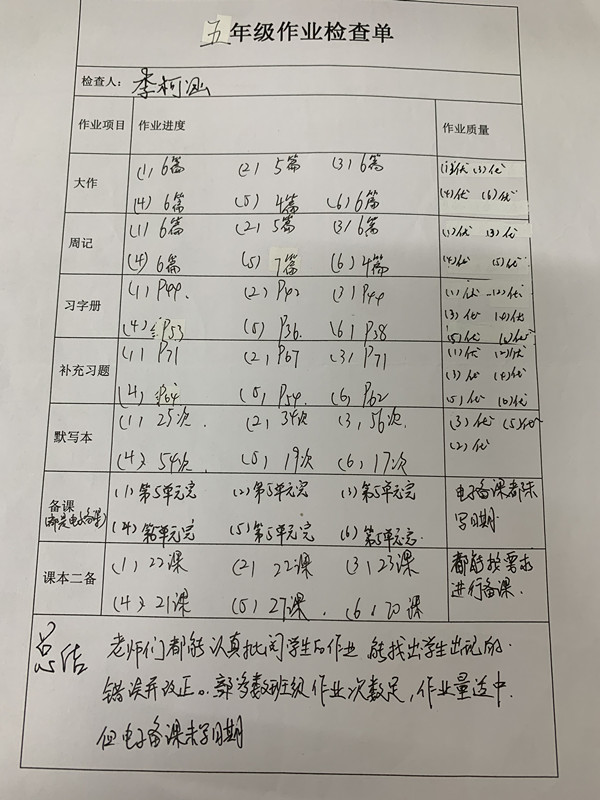 五年级作业检查单
检查人：李柯汕
作业项目 作业进度 作业质量
大作 (1) 6篇 (2) 5篇 (3) 6篇 (1)优 (3)优
(4) 6篇 (5) 4篇 (6) 6篇 (4)优 (6)优
周记 (1) 6篇 (2) 5篇 (3) 6篇 (1)优 (3)优
(4) 6篇 (5) 7篇 (6) 4篇 (4)优 (5)优
习字册 (1) P44. (2) P42 (3) P44 (1)优 (2)优.
(4) P53 (5) P36. (6) P38 (3)优 (4)优
(5)优 (6)优
补充习题 (1) P71 (2) P67 (3) P71 (1)优 (2)优
(4) P64 (5) P54. (6) P62 (3)优 (4)优
(5)优 (6)优
默写本 (1) 25次 (2) 34次 (3) 56次 (3)优 (5)优
(4) 54次. (5) 19次 (6) 17次 (2)优
备课 (1) 第5单元完 (2) 第5单元完 (3) 第5单元完 电子备课都未
(都是电子备课) (4) 第5单元完 (5) 第5单元完 (6) 第5单元完. 写日期.
课本二备 (1) 22课 (2) 22课 (3) 23课 都能按要求
(4) 21课 (5) 27课. (6) 20课 进行备课.
总结 老师们都能认真批阅学生的作业 能找出学生出现的
错误并改正。部多数班级作业次数足，作业量适中.
但电子备课未写日期